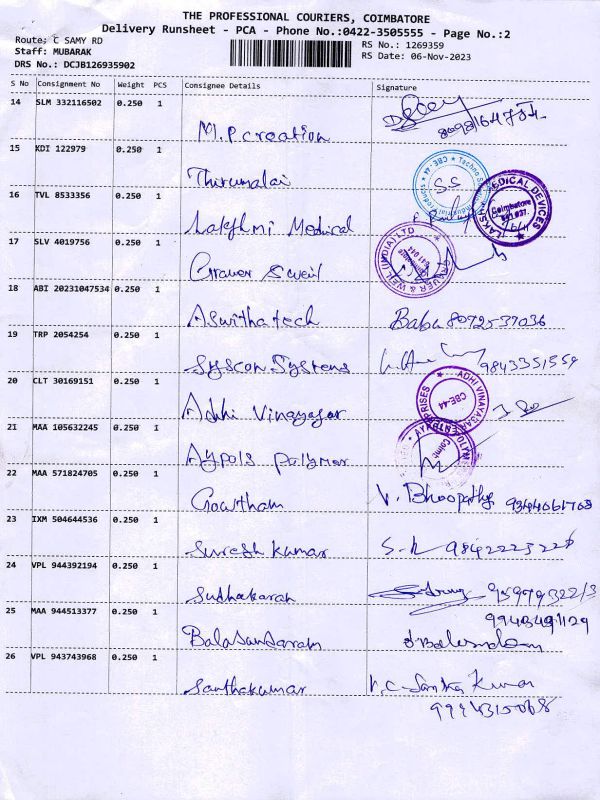 THE PROFESSIONAL COURIERS, COIMBATORE
Delivery Runsheet - PCA - Phone No.:0422-3505555 - Page No.:2
Route: C SAMY RD
Staff: MUBARAK
DRS No.: DCJB126935902
RS No.: 1269359
RS Date: 06-Nov-2023
S No Consignment No Weight PCS Consignee Details Signature
14 SLM 332116502 0.250 1 M.P.creation
15 KDI 122979 0.250 1 Thirumalai
16 TVL 8533356 0.250 1 Lakshmi Medical
17 SLV 4019756 0.250 1
18 ABI 20231047534 0.250 1 Aswitha tech Babu 8072537036
19 TRP 2054254 0.250 1 Syscon Systems 9843351559
20 CLT 30169151 0.250 1 Adhi Vinayagar
21 MAA 105632245 0.250 1 Aypols polymer
22 MAA 571824705 0.250 1 Gowtham V. Bhoopathy
23 IXM 504644536 0.250 1 Suresh kumar S.K
24 VPL 944392194 0.250 1 Sudhakaran
25 MAA 944513377 0.250 1 Balasundaram
26 VPL 943743968 0.250 1 Santhakumar